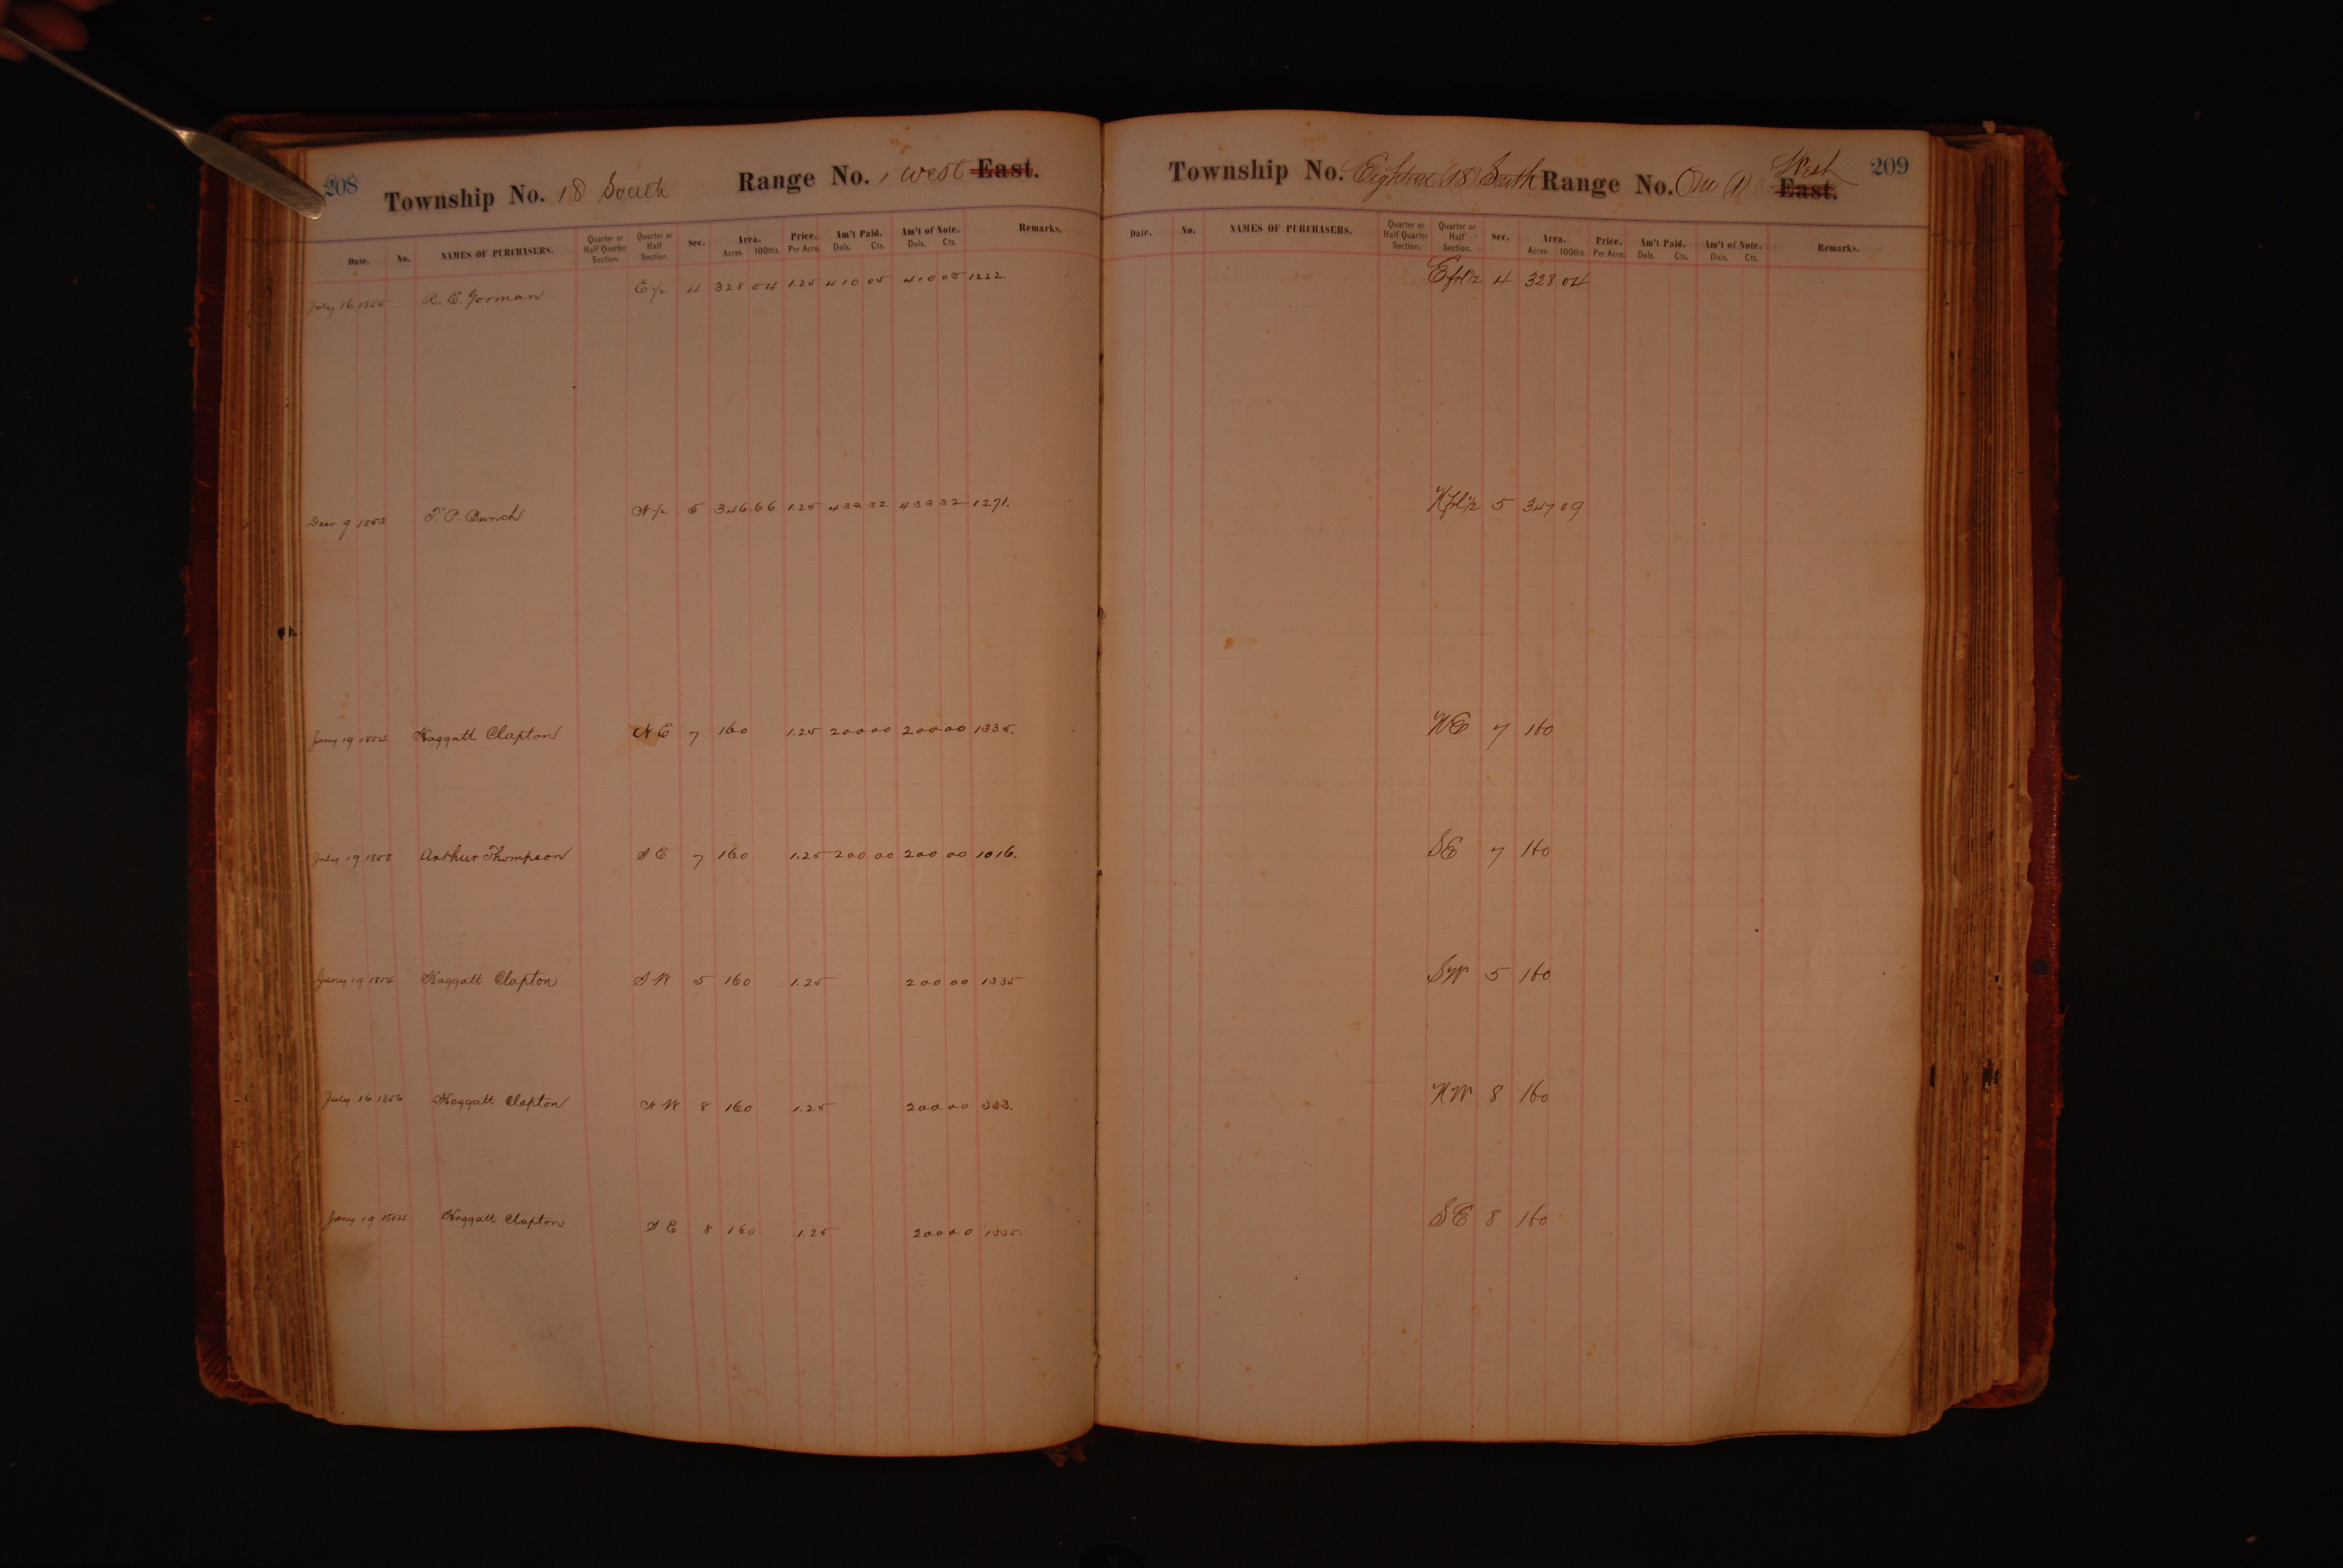 208
Township No. 18 South Range No. 1 West East.
Date. No. NAMES OF PURCHASERS. Quarter or Half Quarter Section. Quarter or Half Section. Sec. Area. Acres 100ths. Price. Per Acre. Am't Paid. Dols. Cts. Am't of Note. Dols. Cts. Remarks.
July 16 R. E. Gorman E 1/2 4 328 04 1.25 410 05 410 05 1222
9 1853 T. P. Bunch N 1/2 5 346 66 1.25 433 32 433 32 1271.
Jany 19 1854 Haggatt Clapton N E 7 160 1.25 200 00 200 00 1335.
July 19 Arthur Thompson S E 7 160 1.25 200 00 200 00 1016.
Jany 19 1854 Haggatt Clapton S W 5 160 1.25 200 00 1335
July 16 1856 Haggatt Clapton N W 8 160 1.25 200 00 333.
Jany 19 1854 Haggatt Clapton S E 8 160 1.25 200 00 1335.
209
Township No. Eighteen (18) South Range No. One (1) West East.
Date. No. NAMES OF PURCHASERS. Quarter or Half Quarter Section. Quarter or Half Section. Sec. Area. Acres 100ths. Price. Per Acre. Am't Paid. Dols. Cts. Am't of Note. Dols. Cts. Remarks.
E frl 1/2 4 328 04
N frl 1/2 5 347 09
NE 7 160
SE 7 160
SW 5 160
NW 8 160
SE 8 160